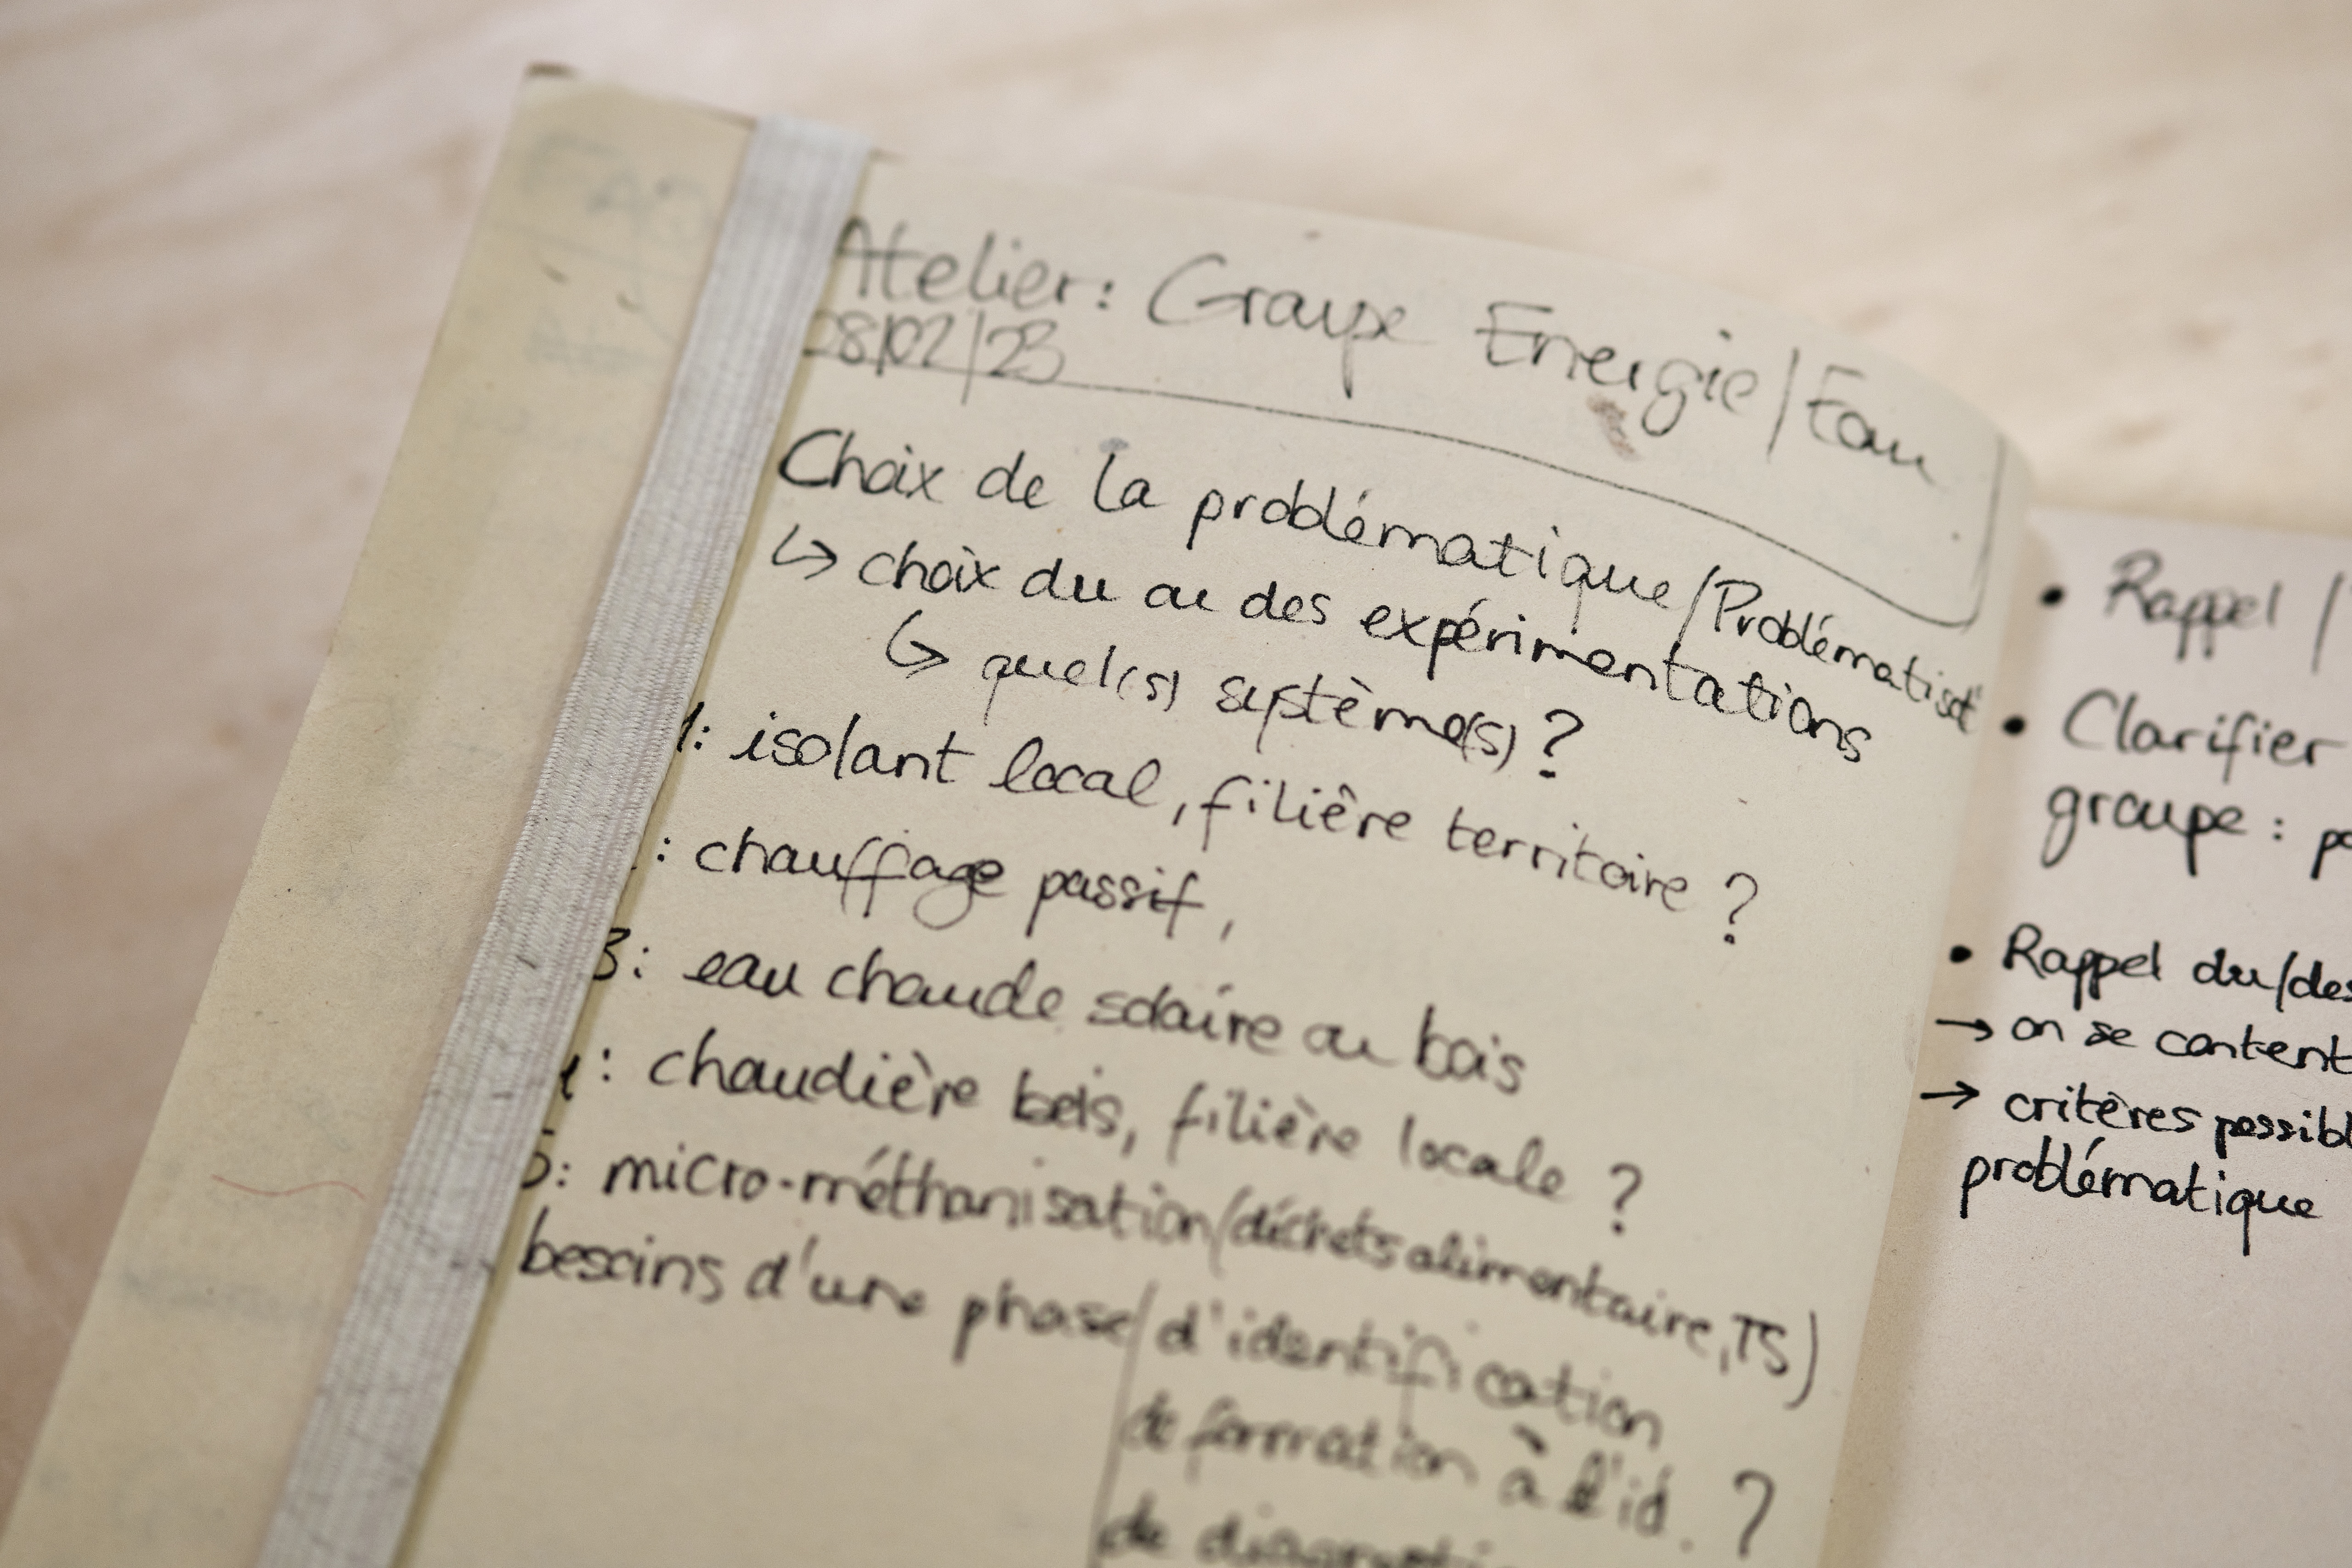 Atelier: Groupe Energie/Eau
28/02/23
Choix de la problématique/Problématisat°
↳ choix du ou des expérimentations
↳ quel(s) système(s) ?
1: isolant local, filière territoire ?
: chauffage passif,
3: eau chaude solaire ou bois
4: chaudière bois, filière locale ?
5: micro-méthanisation (déchets alimentaire, TS)
besoins d'une phase / d'identification
de formation à l'id. ?
de
• Rappel /
• Clarifier
groupe :
• Rappel du/des
→ on se content
→ critères possibl
problématique